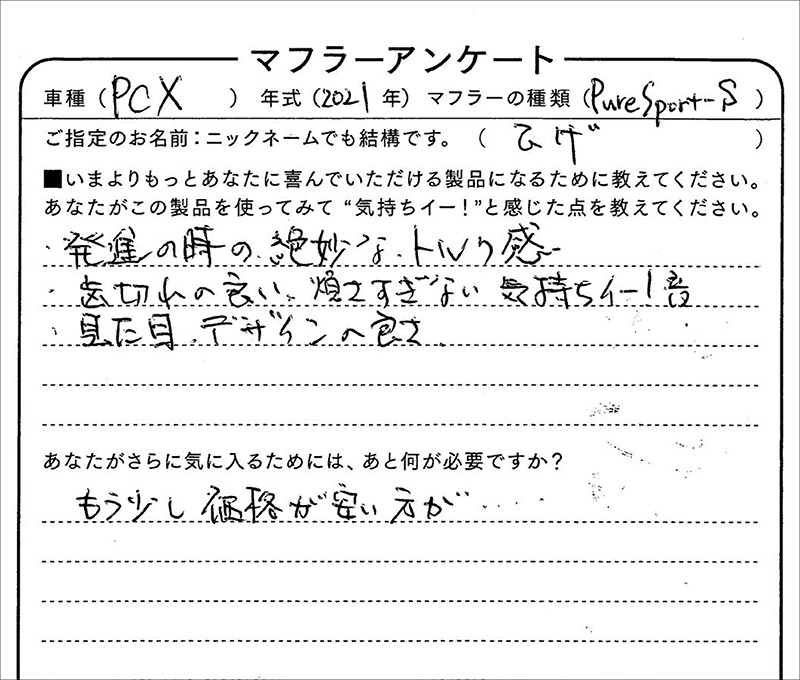 マフラーアンケート
車種（PCX）年式（2021年）マフラーの種類（PureSport-S）
ご指定のお名前：ニックネームでも結構です。（ひげ）
■いまよりもっとあなたに喜んでいただける製品になるために教えてください。
あなたがこの製品を使ってみて“気持ちイー！”と感じた点を教えてください。
・発進の時の絶妙なトルク感
・歯切れの良い、煩さすぎない気持ちイー！音
・見た目、デザインの良さ
あなたがさらに気に入るためには、あと何が必要ですか？
もう少し価格が安い方が・・・・